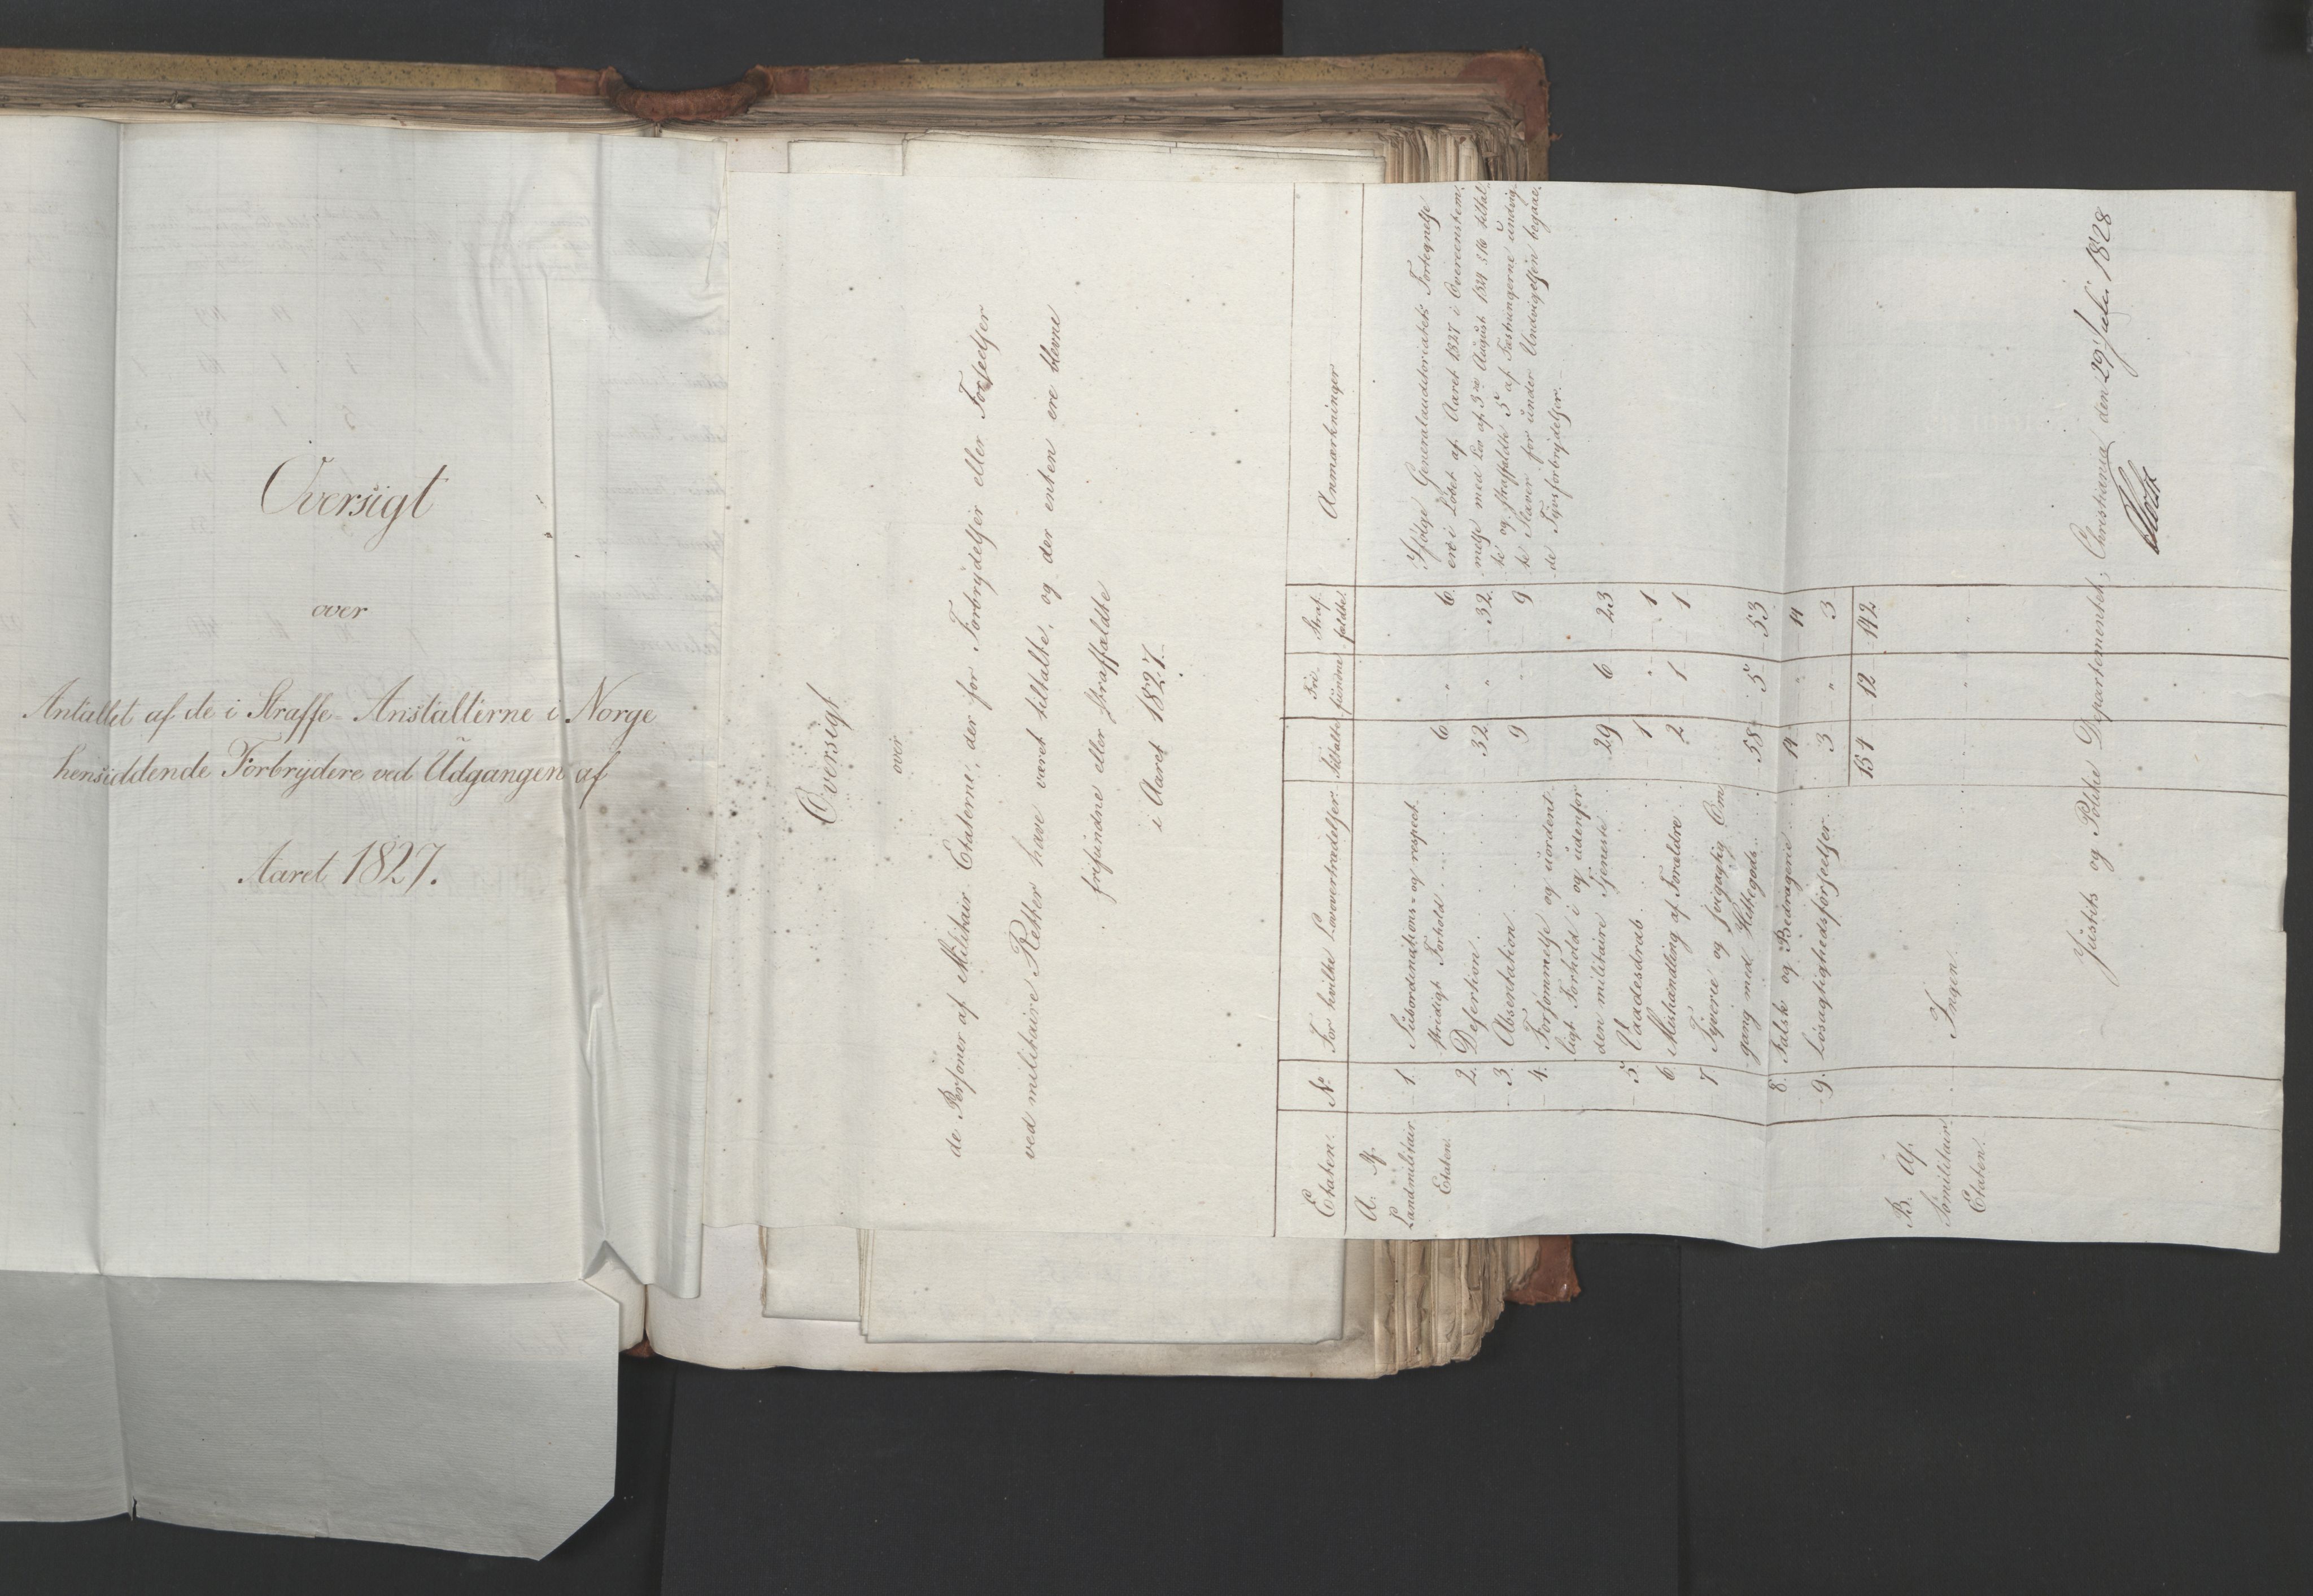 Oversigt
over
Antallet af de i Straffe-Anstalterne i Norge
hensiddende Forbrydere ved Udgangen af
Aaret 1827.
Oversigt
over
de Personer af Militair Etaterne, der for Forbrydelser eller Forseelser
ved militaire Retter have været tiltalte, og der enten ere blevne
frifundne eller straffældte
i Aaret 1827.
Etaten. No For hvilke Lovovertrædelser. Tiltalte Fri- Straf-
fundne fældte. Anmærkninger
A. Af
Landmilitair
Etaten.
1. Subordinations- og respect-
stridigt Forhold 6 " 6.
2. Desertion 32 " 32.
3. Absentation 9 " 9
4. Forsømmelse og uordent-
ligt Forhold i og udenfor
den militaire Tjeneste 29 6 23
5. Vaadesdrab 1 " 1
6. Mishandling af Forældre 2 1 1
7 Tyverie og svigagtig Om-
gang med Hittegods 58 5 53
8. Falsk og Bedragerie 14 " 14
9. Løsagtighedsforseelser 3 " 3
154 12 142
Ifølge Generalauditoriatets Fortegnelse
ere i Løbet af Aaret 1827 i Overensstem-
melse med Lov af 3die August 1824 §16 tiltal-
te og straffældte 5 af Fæstningerne undvig-
te Slaver for under Undvigelsen begaae-
de Tyvsforbrydelser.
B. Af
Sömilitair
Etaten.
Ingen "
Justits og Politie Departementet, Christiania den 29 Juli 1828